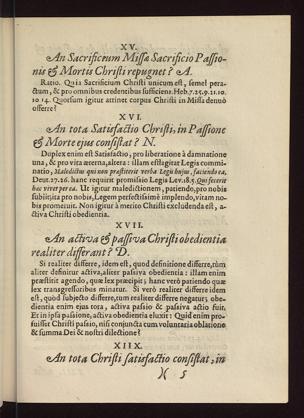 XV.
An Sacrificium Missæ Sacrificio Passio-
nis & Mortis Christi repugnet? A.
Ratio. Quia Sacrificium Christi unicum est, semel pera-
ctum, & pro omnibus credentibus sufficiens. Heb. 7. 25. 9. 21. 10.
10 14. Quorsum igitur attinet corpus Christi in Missa denuò
offerre?
XVI.
An tota Satisfactio Christi, in Passione
& Morte ejus consistat? N.
Duplex enim est Satisfactio, pro liberatione à damnatione
una, & pro vita æterna, altera: illam efflagitat Legis commi-
natio, Maledictus qui non præstiterit verba Legis hujus, faciendo ea,
Deut. 27. 26. hanc requirit promissio Legis Lev. 18. 5. Qui fecerit
hoc vivet per ea. Ut igitur maledictionem, patiendo, pro nobis
subiit; ita pro nobis, Legem perfectissimè implendo, vitam no-
bis promeruit. Non igitur à merito Christi excludenda est, a-
ctiva Christi obedientia.
XVII.
An activa & passiva Christi obedientia
realiter differant? D.
Si realiter differre, idem est, quod definitione differre, tùm
aliter definitur activa, aliter passiva obedientia: illam enim
præstitit agendo, quæ lex præcepit; hanc verò patiendo quæ
lex transgressoribus minatur. Si verò realiter differre idem
est, quod subjecto differre, tum realiter differre negatur; obe-
dientia enim ejus tota, activa passio & passiva actio fuit.
Et in ipsa passione, activa obedientia eluxit: Quid enim pro-
fuisset Christi passio, nisi conjuncta cum voluntaria oblatione
& summa Dei & nostri dilectione?
XIIX.
An tota Christi satisfactio consistat, in
)( 5